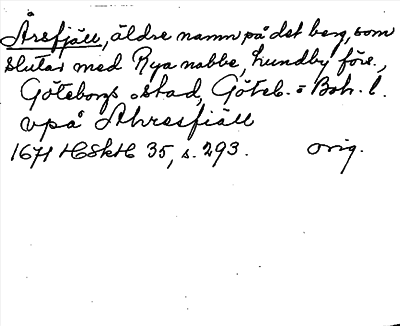 Åresfjäll, äldre namn på det berg, som
slutar med Rya nabbe, Lundby förs.,
Göteborgs stad, Göteb. o Boh. l.
vpå Ahresfiäll
1671 HSkH 35, s. 293. orig.